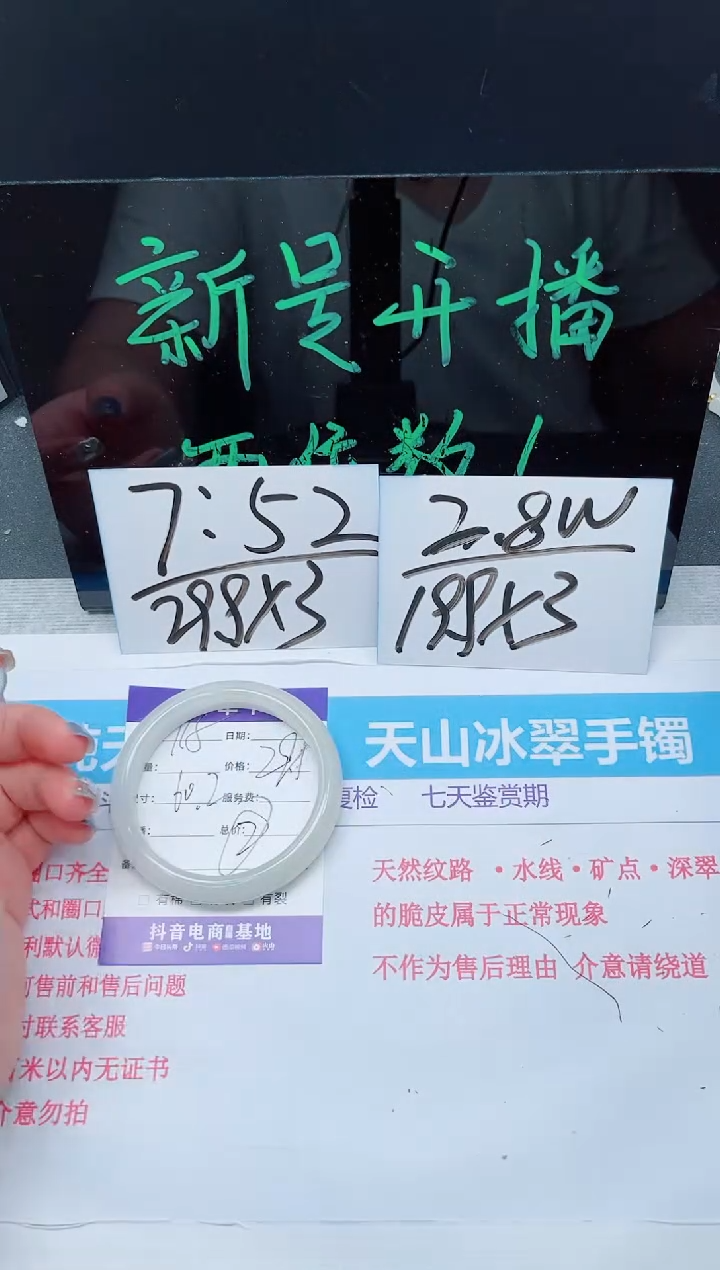 新号开播
两位数！
7:52
299X3
2.8W
199X3
天山冰翠手镯
复检 七天鉴赏期
118 日期:
量: 价格: 299
寸: 60.2 服务费:
总价: 2
备
有裂
抖音电商直播基地
圈口齐全
式和圈口
利默认微
何售前和售后问题
时联系客服
米以内无证书
介意勿拍
天然纹路 ·水线·矿点·深翠
的脆皮属于正常现象
不作为售后理由 介意请绕道